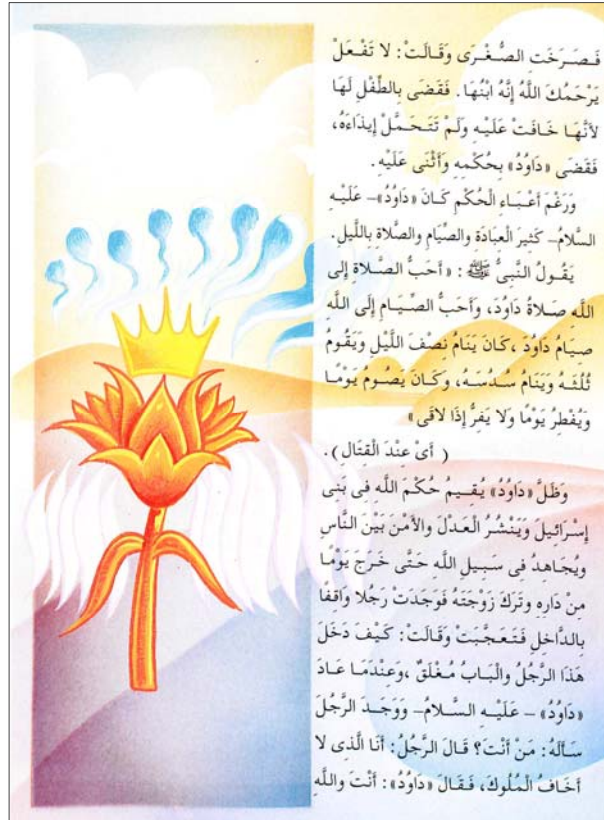 فَصَرَخَت الصُّغْرَى وَقَالَتْ: لا تَفْعَلْ
يَرْحَمُكَ اللَّهُ إِنَّهُ ابْنُهَا. فَقَضَى بِالطِّفْلِ لَهَا
لأَنَّهَا خَافَتْ عَلَيْهِ وَلَمْ تَتَحَمَّلْ إِيذَاءَهُ،
فَقَضَى «دَاوُدُ» بِحُكْمِهِ وَأَثْنَى عَلَيْهِ.
وَرَغْمَ أَعْبَاءِ الْحُكْمِ كَانَ «دَاوُدُ» – عَلَيْهِ
السَّلامُ – كَثِيرَ الْعِبَادَةِ وَالصِّيَامِ وَالصَّلاةِ بِاللَّيلِ.
يَقُولُ النَّبِىُّ ﷺ: «أَحَبُّ الصَّلاةِ إِلى
اللَّهِ صَلاةُ دَاوُدَ، وَأَحَبُّ الصِّيَامِ إِلَى اللَّهِ
صِيَامُ دَاوُدَ، كَانَ يَنَامُ نِصْفَ اللَّيْلِ وَيَقُومُ
ثُلُثَهُ وَيَنَامُ سُدُسَهُ، وَكَانَ يَصُومُ يَوْمًا
وَيُفْطِرُ يَوْمًا وَلا يَفِرُّ إِذَا لاقَى»
(أَىْ عِنْدَ الْقِتَالِ).
وَظَلَّ «دَاوُدُ» يُقِيمُ حُكْمَ اللَّهِ فِى بَنِى
إِسْرَائِيلَ وَيَنْشُرُ الْعَدْلَ وَالأَمْنَ بَيْنَ النَّاسِ
وَيُجَاهِدُ فِى سَبِيلِ اللَّهِ حَتَّى خَرَجَ يَوْمًا
مِنْ دَارِهِ وَتَرَكَ زَوْجَتَهُ فَوَجَدَتْ رَجُلا وَاقِفًا
بِالدَّاخِلِ فَتَعَجَّبَتْ وَقَالَتْ: كَيْفَ دَخَلَ
هَذَا الرَّجُلُ وَالْبَابُ مُغْلَقٌ، وَعِنْدَمَا عَادَ
«دَاوُدُ» – عَلَيْهِ السَّلامُ – وَوَجَدَ الرَّجُلَ
سَأَلَهُ: مَنْ أَنْتَ؟ قَالَ الرَّجُلُ: أَنَا الَّذِى لا
أَخَافُ الْمُلُوكَ، فَقَالَ «دَاوُدُ»: أَنْتَ وَاللَّهِ